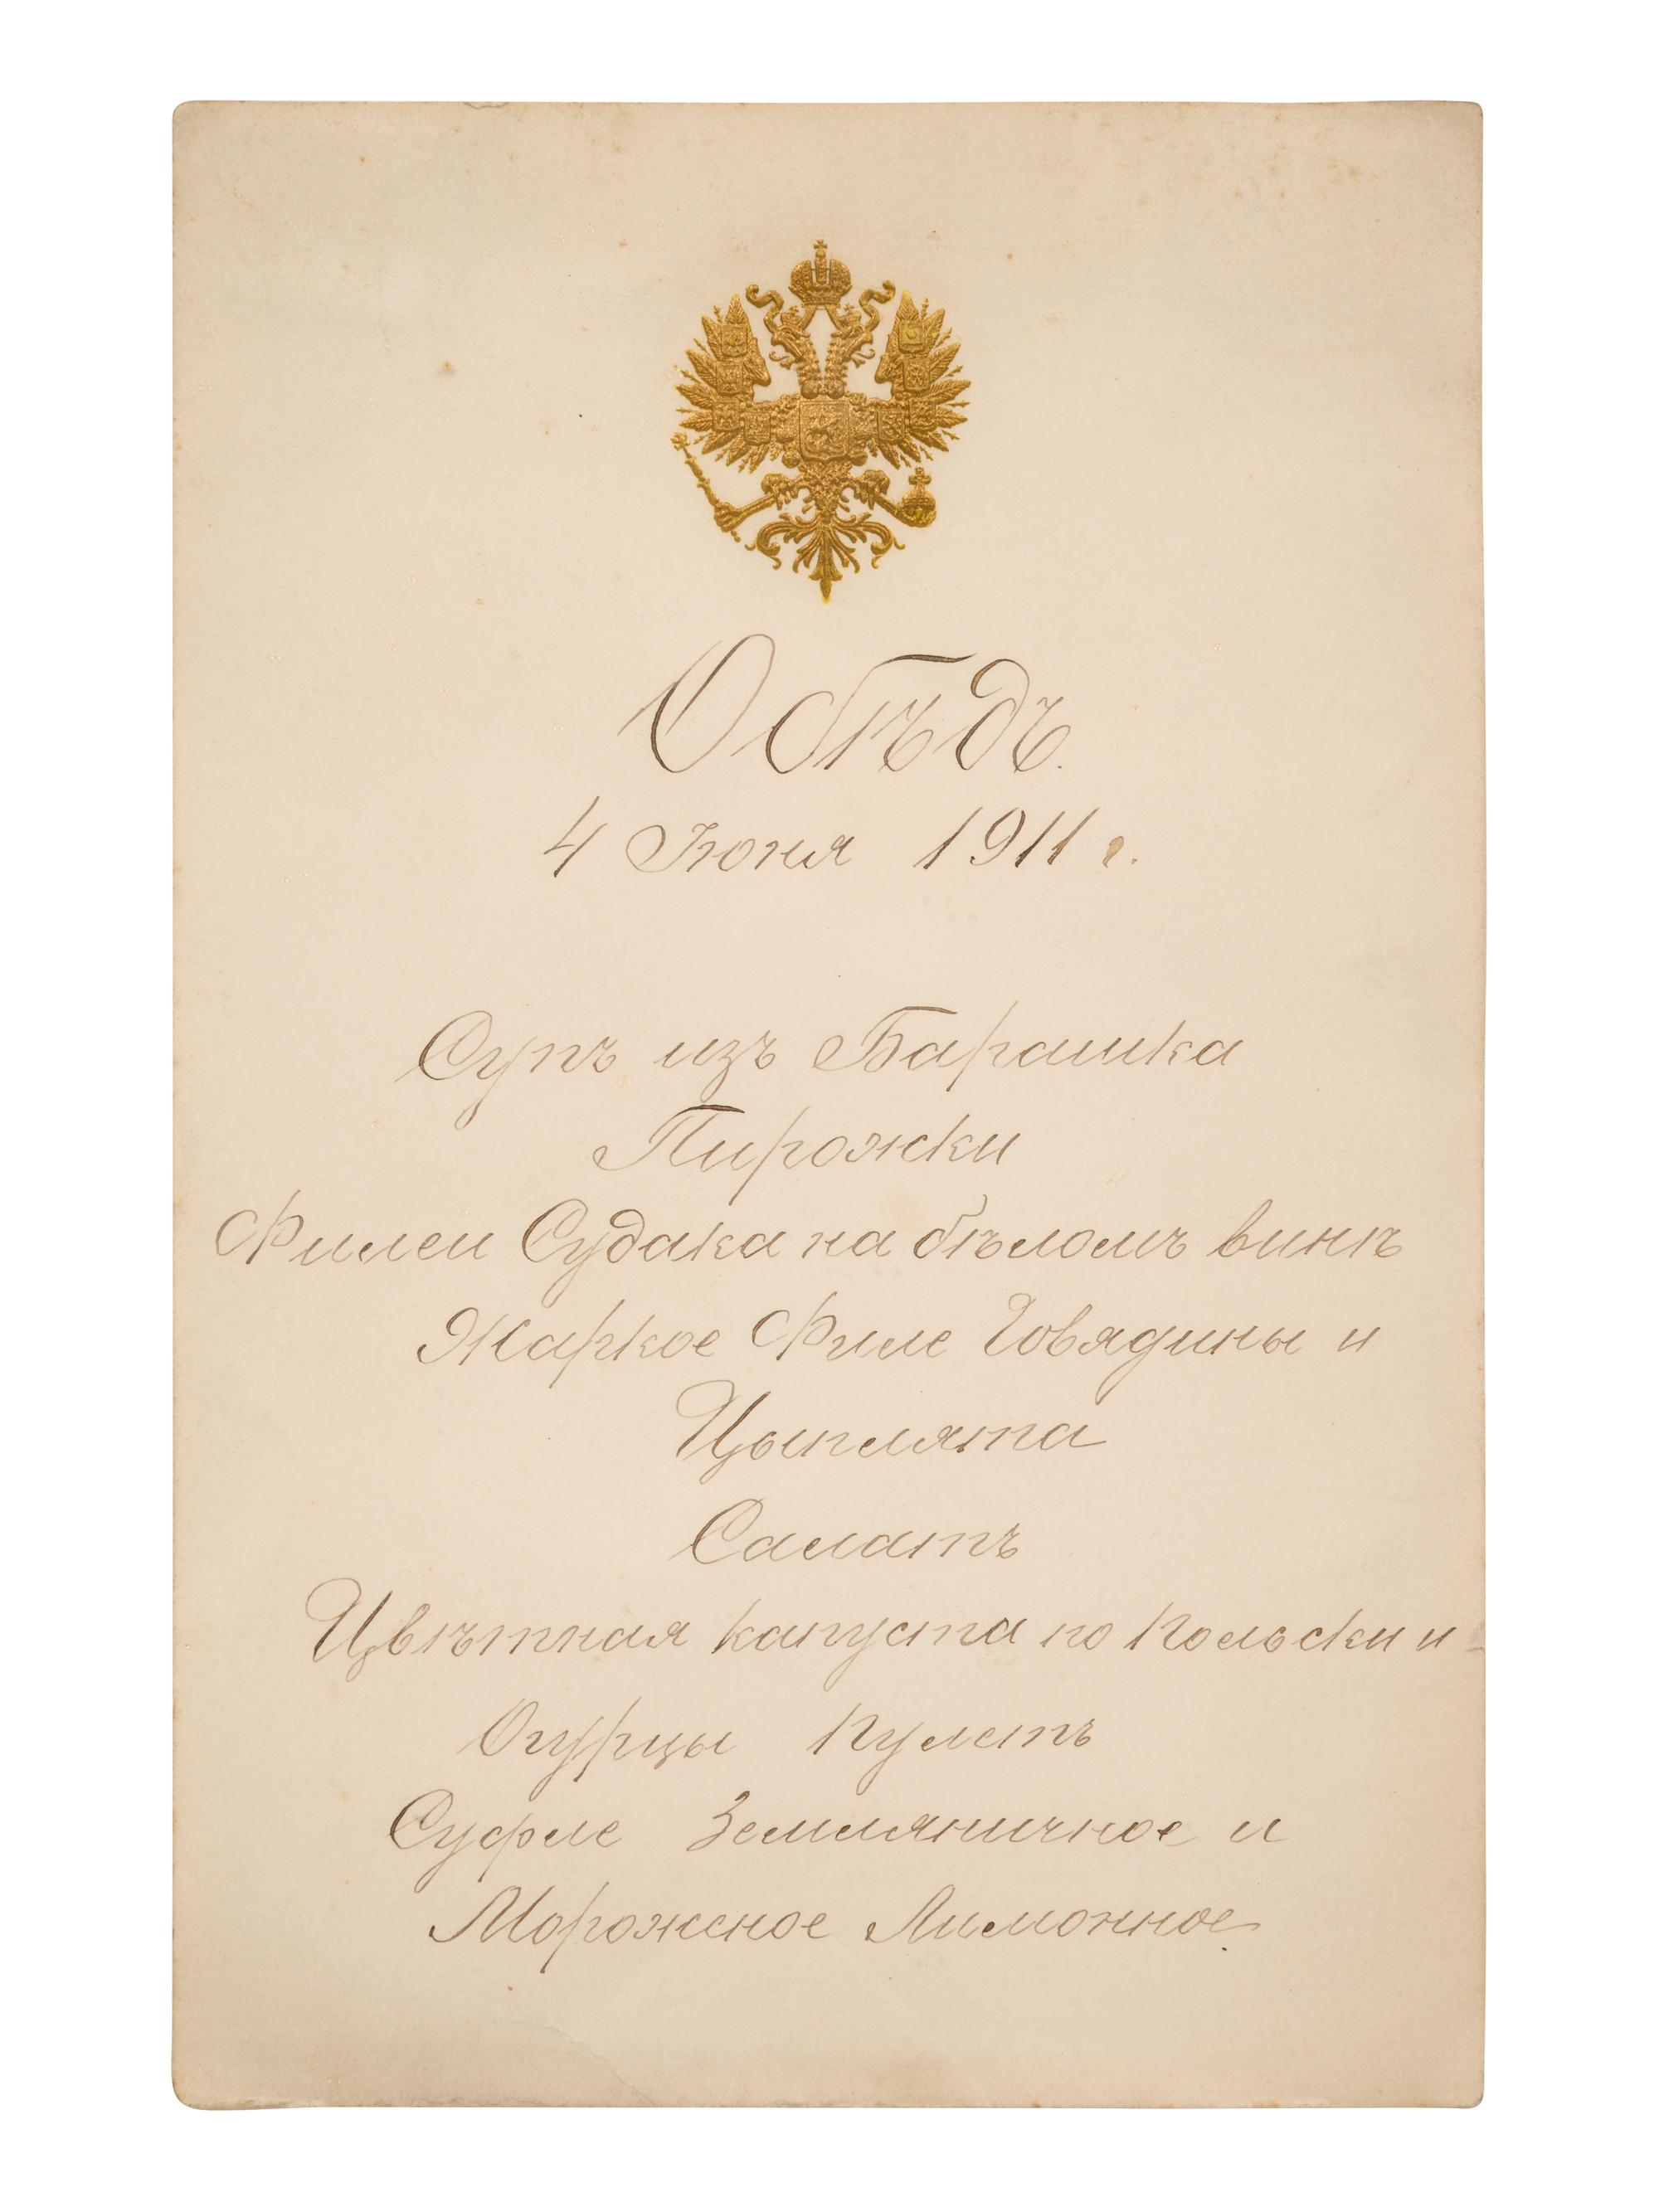 Обѣдъ.
4 Июня 1911 г.
Супъ изъ Барашка
Пирожки
Филеи Судака на бѣломъ винѣ
Жаркое Филе Говядины и
Цыплята
Салатъ
Цвѣтная капуста по Польски и
Огурцы Пулетъ
Суфле Земляничное и
Мороженое Лимонное.